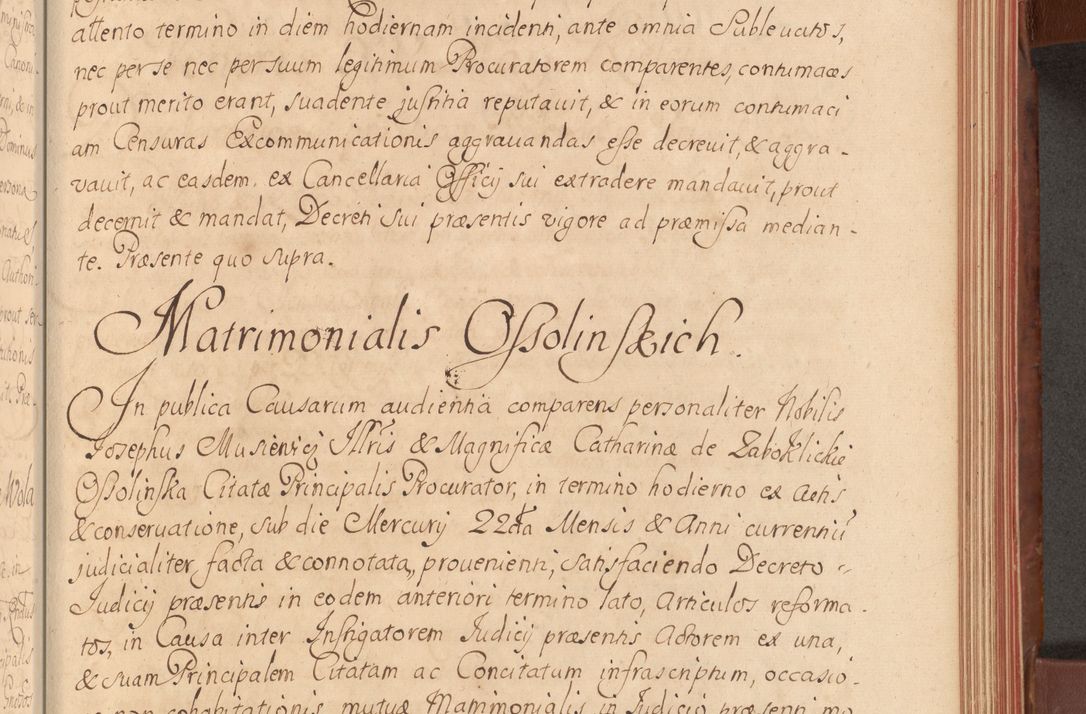 attento termino in diem hodiernam incidenti, ante omnia Sublevatos,
nec per se nec per suum legitimum Procuratorem comparentes, contumaces
prout merito erant, suadente justitia reputavit, & in eorum contumaci
am Censuras Excommunicationis aggravandas esse decrevit, & aggra-
vavit, ac easdem ex Cancellaria Officij sui extradere mandavit, prout
decernit & mandat, Decreti sui præsentis vigore ad præmissa median-
te. Præsente quo supra.
Matrimonialis Ossolinskich.
In publica Causarum audientia comparens personaliter Nobilis
Josephus Musiewicz Illris & Magnificæ Catharinæ de Zaboklickie
Ossolinska Citatæ Principalis Procurator, in termino hodierno ex Actis
& conservatione, sub die Mercurij 22da Mensis & Anni currentiu
judicialiter facta & connotata, provenienti, satisfaciendo Decreto
Judicij præsentis in eodem anteriori termino lato, Articulos reforma-
tos, in Causa inter Instigatorem Judicij præsentis Actorem ex una,
& suam Principalem Citatam ac Concitatum infrascriptum, occasio-
non cohabitationis mutuæ Matrimonialis in Judicio præsenti mo